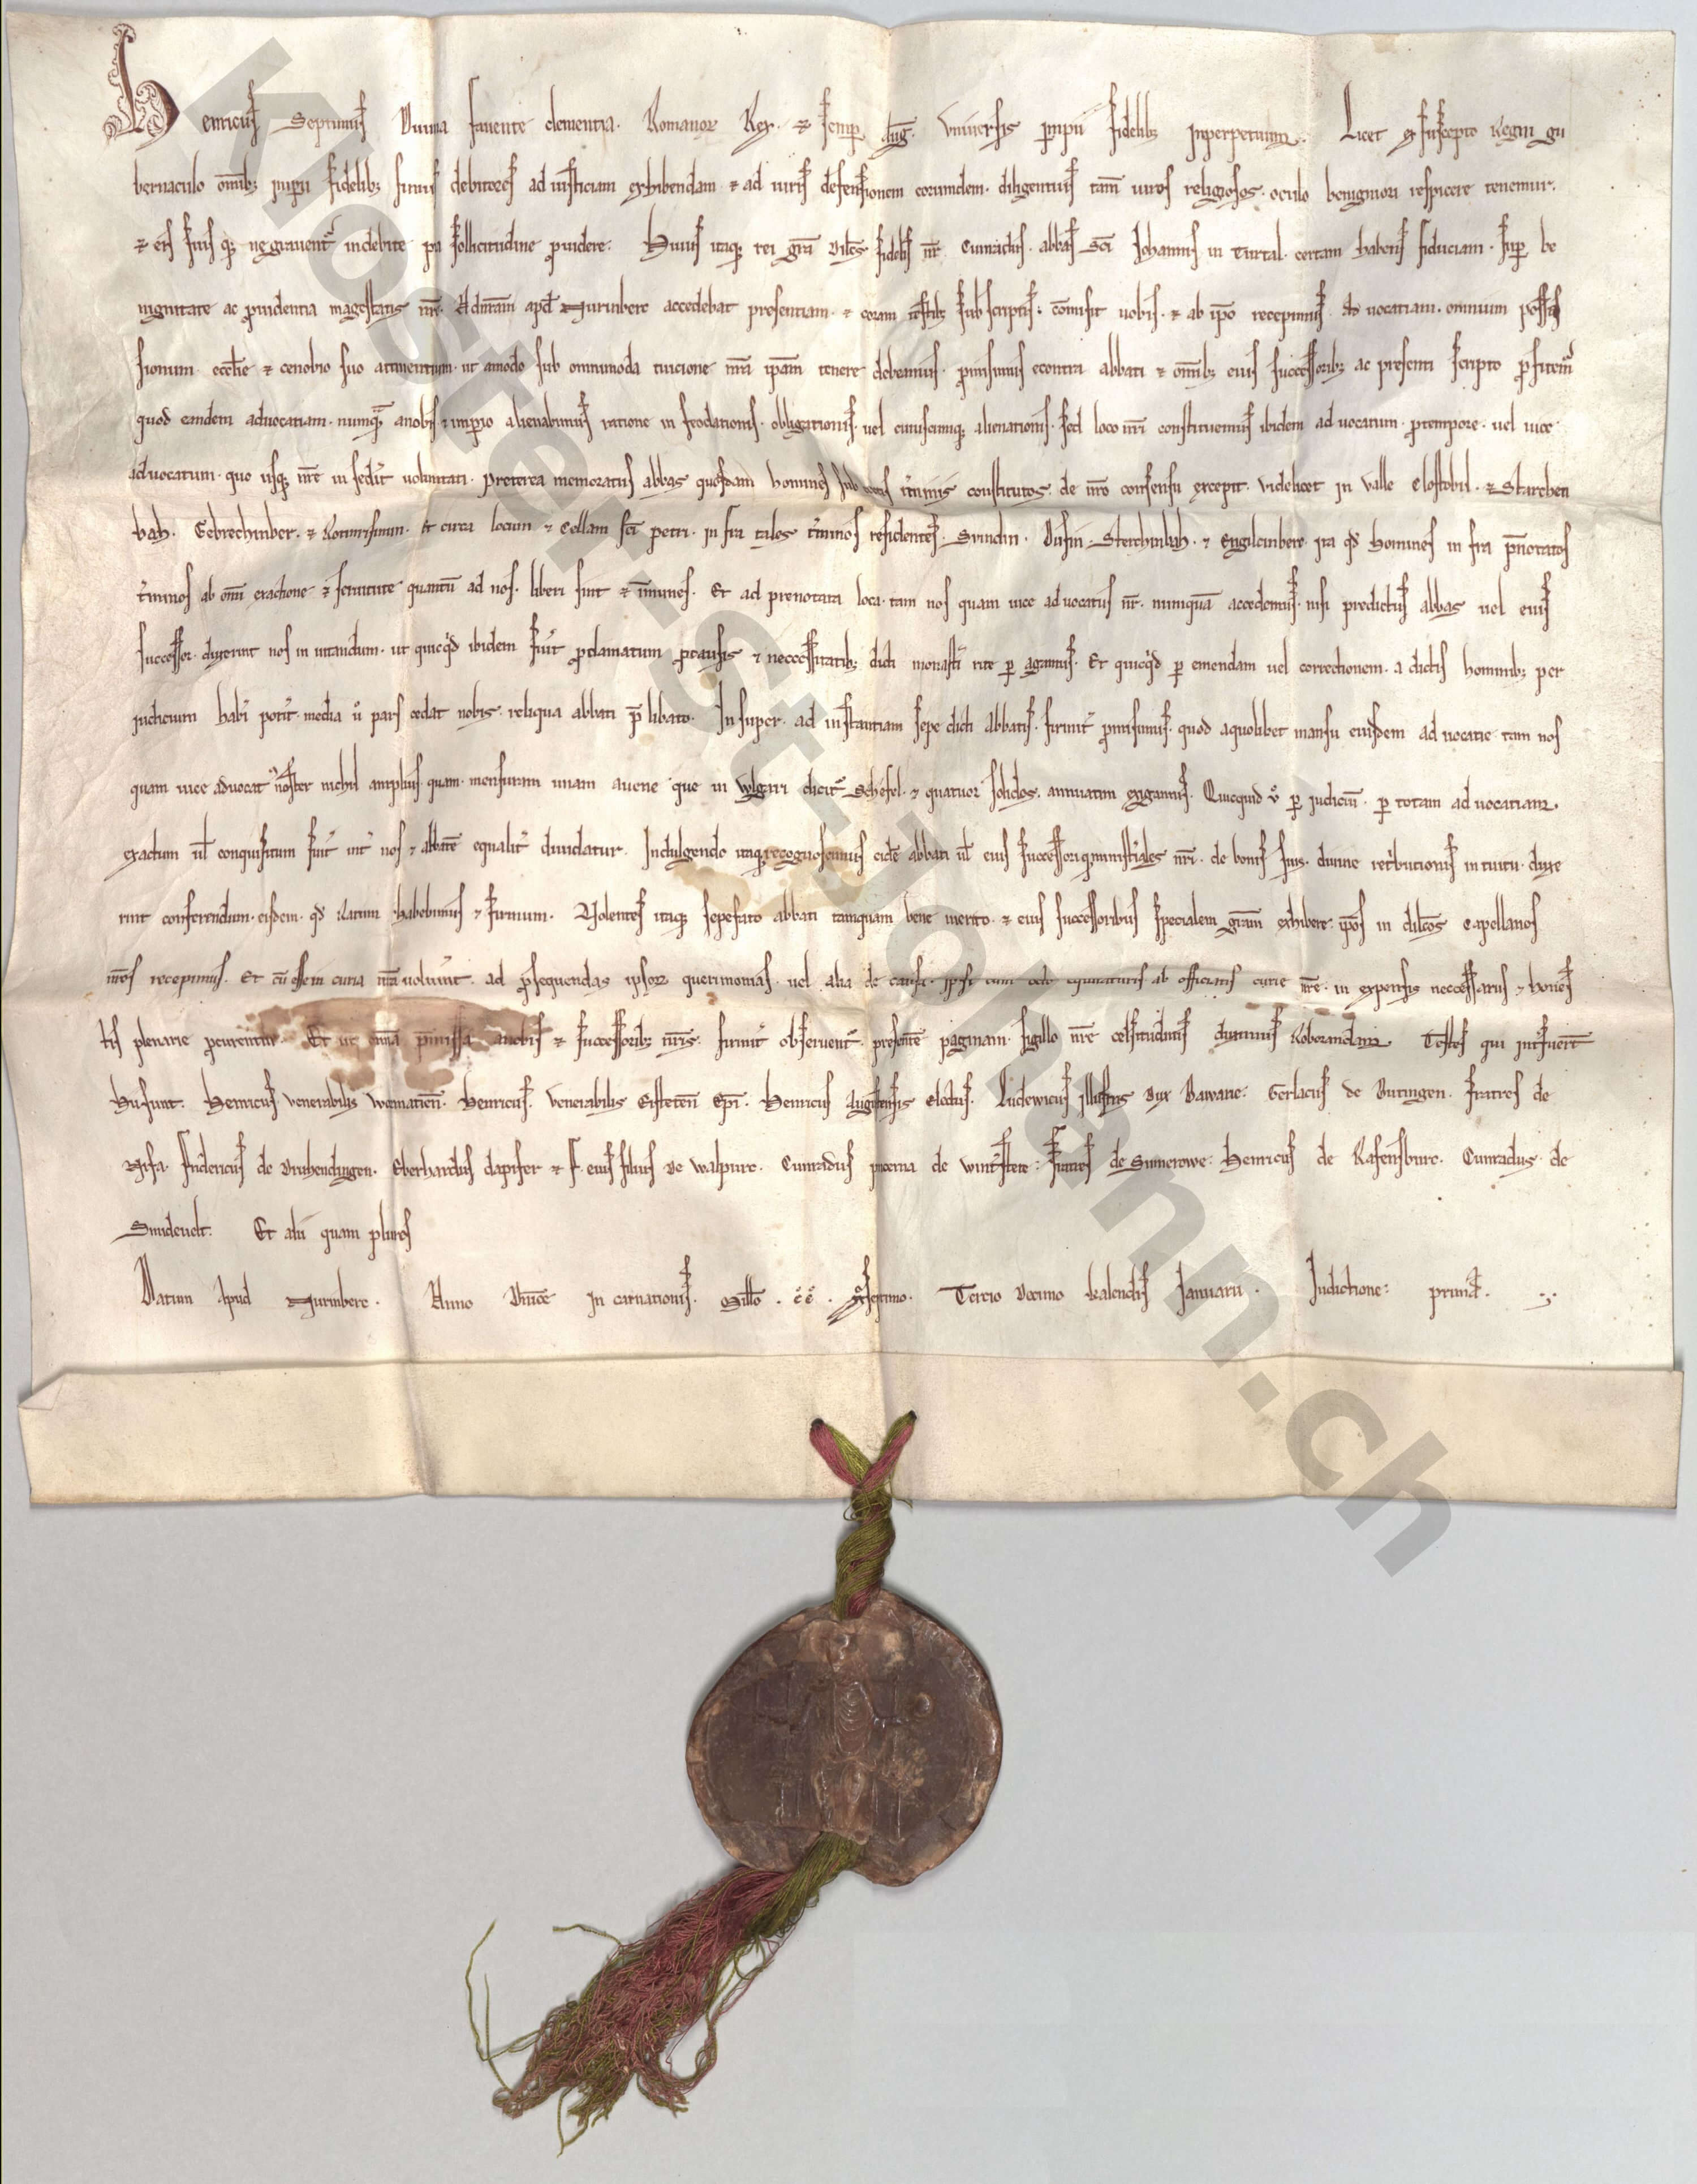 Henricus Septimus Diuina fauente clementia. Romanor Rex. et semp Aug. Vniuersis impii fidelib; inperpetuum. Licet ex suscepto regni gu
bernaculo omib; impii fidelib; simus debitores ad iusticiam exhibendam et ad iuris defensionem eorumdem. diligentius tam uiros religiosos. oculo benigniori respicere tenemur.
et eis suis q; ne grauent indebite pia sollicitudine puidere. Huius itaq; rei gra dilcs fidelis nr Cunradus. abbas sci Iohannis in Turtal. certam habens fiduciam. sup be
nignitate ac prudentia magestatis nre. Ad nram apd Nurinberc accedebat presentiam. et coram testib; sub scriptis: comisit nobis. et ab ipo recepimus aduocatiam. omnium posses
sionum ecclie et cenobio suo attinentium. ut amodo sub omnimoda tuicione nra ipam tenere debeamus. promisimus econtra abbati et omib; eius successorib; ac presenti scripto profitemur
quod eandem aduocatiam. numqua anobis et imperio alienabimus ratione in feodationis. obligationis. uel cuiuscumq; alienationis. sed loco nri constituemus ibidem ad uocatum. protempore. uel uice
aduocatum. quo usq; nre in sedit uoluntati. Preterea memoratus abbas quosdam homines sub certis tminis constitutos. de nro consensu excepit. videlicet in valle Clostobil. et Starchen
bah. Gebrechinber. et Rotinrisinun. Et circa locum et Cellam sci petri. in fra tales tminos residentes. Snindin. Dusin. Sterchinbah. et Engilcinbere. ita qd homines in fra pnotatos
tminos ab omi exactione et seruitute quantu ad nos. liberi sint et imunes. Et ad prenotata loca. tam nos quam uice ad uocatus nr. numqua accedemus. nisi predictus abbas uel eius
successor. duxerint nos in uitandum. ut quicqd ibidem fuit pclamatum pcausis et neccessitatib; dicti monastii rite p agamus. Et quicqd p emendam uel correctionem. a dictis hominib; per
iudicium habi potit. media u pars cedat nobis. reliqua abbati p libato. Insuper. ad instantiam sepe dicti abbatis. firmit pmisimus. quod aquolibet mansu eiusdem ad uocatie tam nos
quam uice aduocat noster nichil amplius quam. mensuram unam auene que in wlgari dicit Schefel. et quatuor solidos. annuatim exigamus. Quicquid u p iudiciu. p totam ad uocatiam.
exactum ul conquisitum fuit int nos et abbate equalit diuidatur. Indulgendo itaq; recognoscimus eide abbati ul eius successori qministiales nri. de bonis suis. diuine retbutionis in tuitu. duxe
rint conferendum. eisdem. qd Ratum habebimus et firmum. Volentes itaq; sepefato abbati tamquam bene merito. et eius successoribus specialem gram exhibere. ipos in dilcos Capellanos
nros recepimus. Et cu esse in curia nra uoluint. ad psequendas ipsor querimonias. uel alia de causa. ipsi cum octo equitaturis ab officiatis curie nre. in expensis neccessariis et hones
tis plenarie pcurentur. Et ut omia pmissa anobis et successorib; nris. firmit obseruent. presente paginam. sigillo nre celsitudinis duximus Roborandam. Testes qui intfuert
Hii sunt. Henricus venerabilis Wormatien. Henricus. venerabilis Eisteten Epi. Henricus Augustensis electus. Ludewicus illustris Dux Bawarie. Gerlacus de Butingen. fratres de
Nifa. Fridericus de Druhendingen. Eberhardus dapifer et F. eius filius de Walpurc. Cunradus pincerna de Wintstete: fratres de Sumerowe. Henricus de Rafensburc. Cunradus de
Smidevelt. Et alii quam plures
Datum Apud Nurinberc. Anno Dnice in carnationis. Millo. cc. xxvii septimo. Tercio Decimo kalendis Januarii. Indictione: prima.